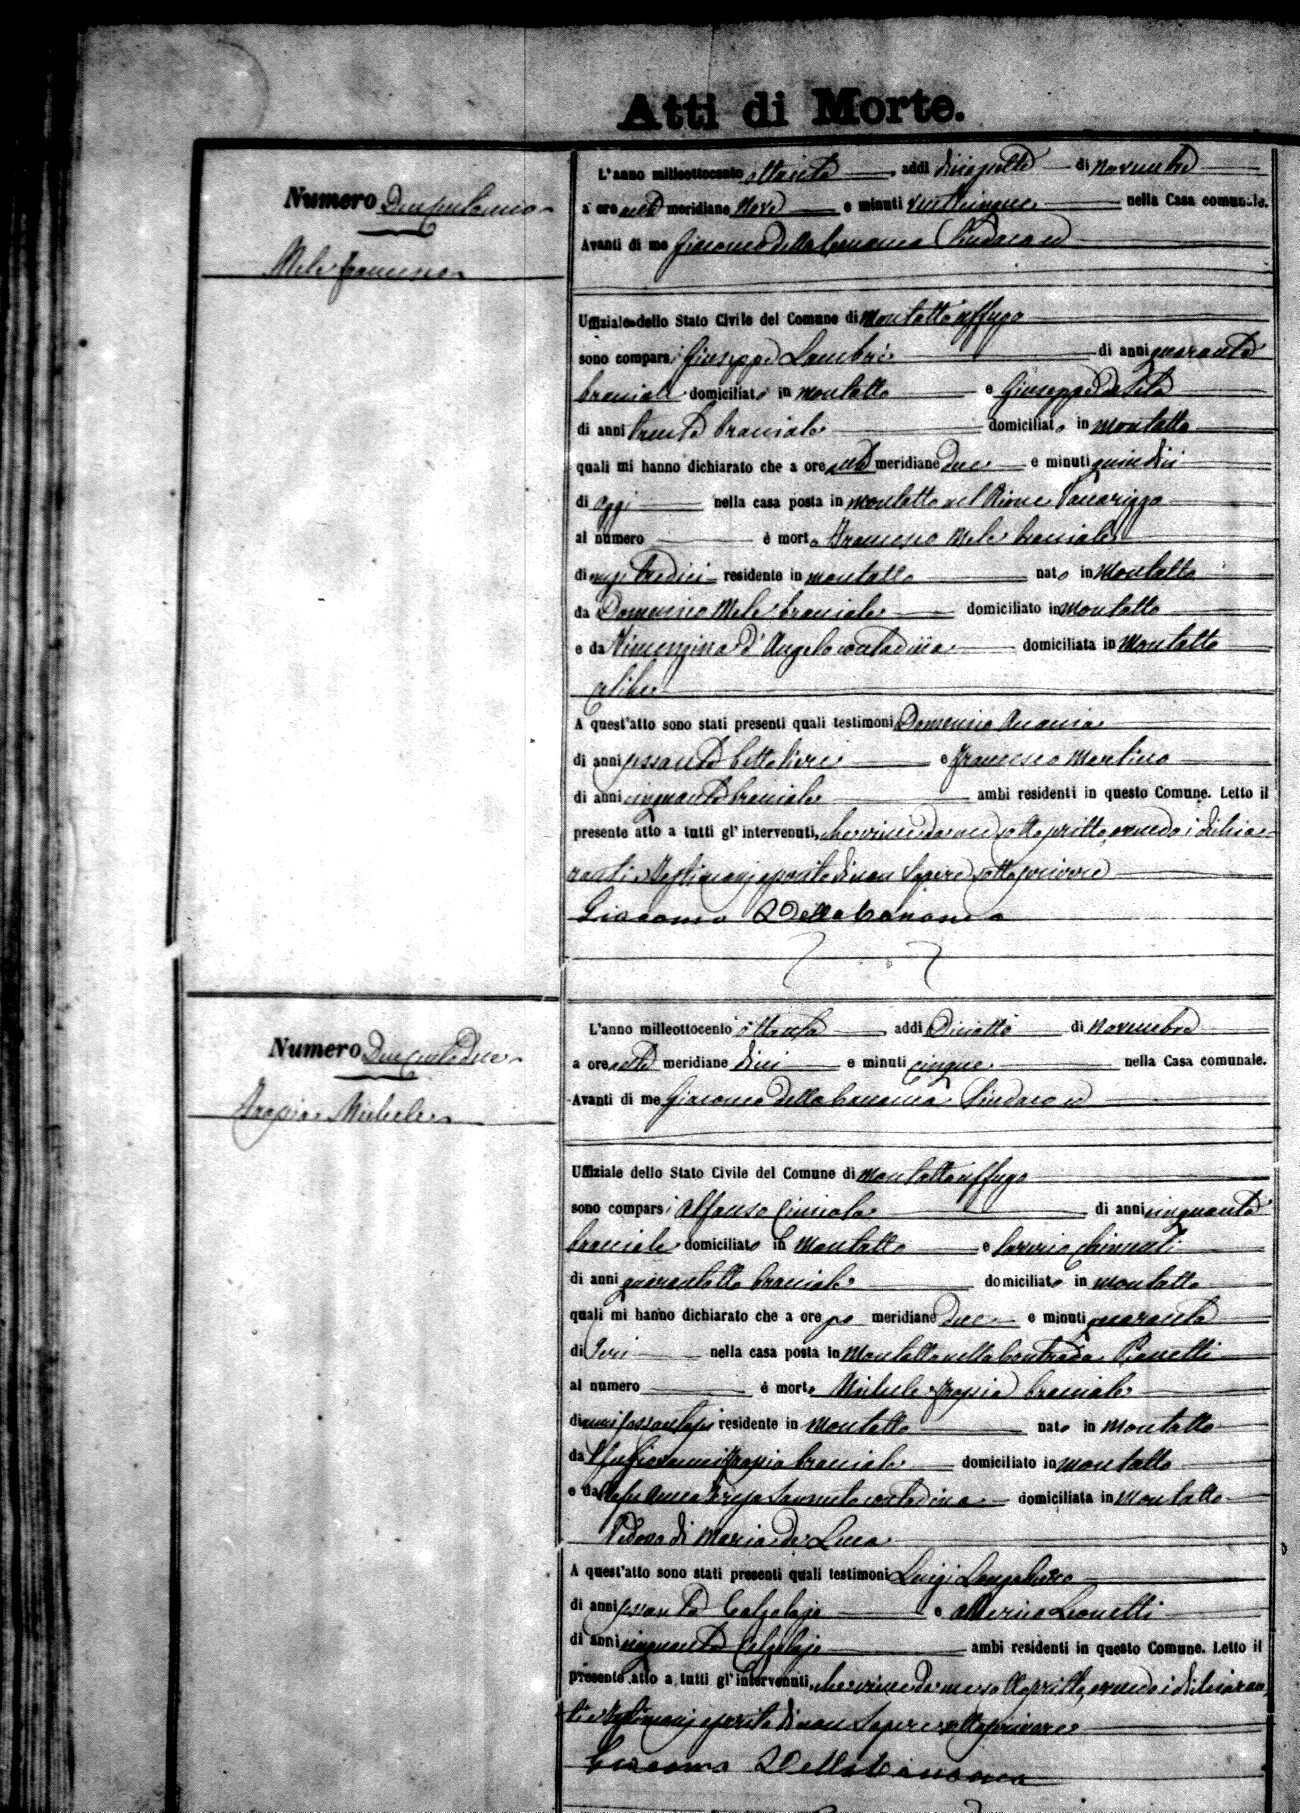 Atti di Morte.
Numero Duecentouno
Mele Francesco
L'anno milleottocento ottanta addi diciasette di Novembre
a ore anti meridiane Nove e minuti venticinque nella Casa comunale.
Avanti di me Giacomo della Cananea Sindaco ed
Uffiziale dello Stato Civile del Comune di Montalto Uffugo
sono comparsi Giuseppe di anni quaranta
bracciale domiciliato in Montalto e Giuseppe
di anni trenta bracciale domiciliato in Montalto
quali mi hanno dichiarato che a ore anti meridiane due e minuti quindici
di oggi nella casa posta in Montalto nel Rione
al numero è morto Francesco Mele bracciale
di anni tredici residente in Montalto nato in Montalto
da Domenico Mele bracciale domiciliato in Montalto
e da Vincenzina d'Angelo contadina domiciliata in Montalto
celibe
A quest'atto sono stati presenti quali testimoni Domenico
di anni sessanta bettoliere e Francesco Martino
di anni cinquanta bracciale ambi residenti in questo Comune. Letto il
presente atto a tutti gl'intervenuti, che viene da me sottoscritto, avendo i dichia-
ranti e testimonj asserito di non sapere sottoscrivere
Giacomo Della Cananea
Numero Duecentodue
Tropia Michele
L'anno milleottocento ottanta addi Diciotto di Novembre
a ore anti meridiane dieci e minuti cinque nella Casa comunale.
Avanti di me Giacomo della Cananea Sindaco ed
Uffiziale dello Stato Civile del Comune di Montalto Uffugo
sono comparsi Alfonso di anni cinquanta
bracciale domiciliato in Montalto e Saverio Chimenti
di anni quarantotto bracciale domiciliato in Montalto
quali mi hanno dichiarato che a ore po meridiane due e minuti quaranta
di Ieri nella casa posta in Montalto nella Contrada Pianetti
al numero è morto Michele Tropia bracciale
di anni residente in Montalto nato in Montalto
da fu Giovanni Tropia bracciale domiciliato in Montalto
e da fu Anna Teresa contadina domiciliata in Montalto
Vedovo di Maria de Luca
A quest'atto sono stati presenti quali testimoni Luigi
di anni sessanta Calzolajo e Alberico Leonetti
di anni cinquanta Calzolajo ambi residenti in questo Comune. Letto il
presente atto a tutti gl'intervenuti, che viene da me sottoscritto, avendo i dichiaran-
ti e testimonj asserito di non sapere sottoscrivere
Giacomo Della Cananea